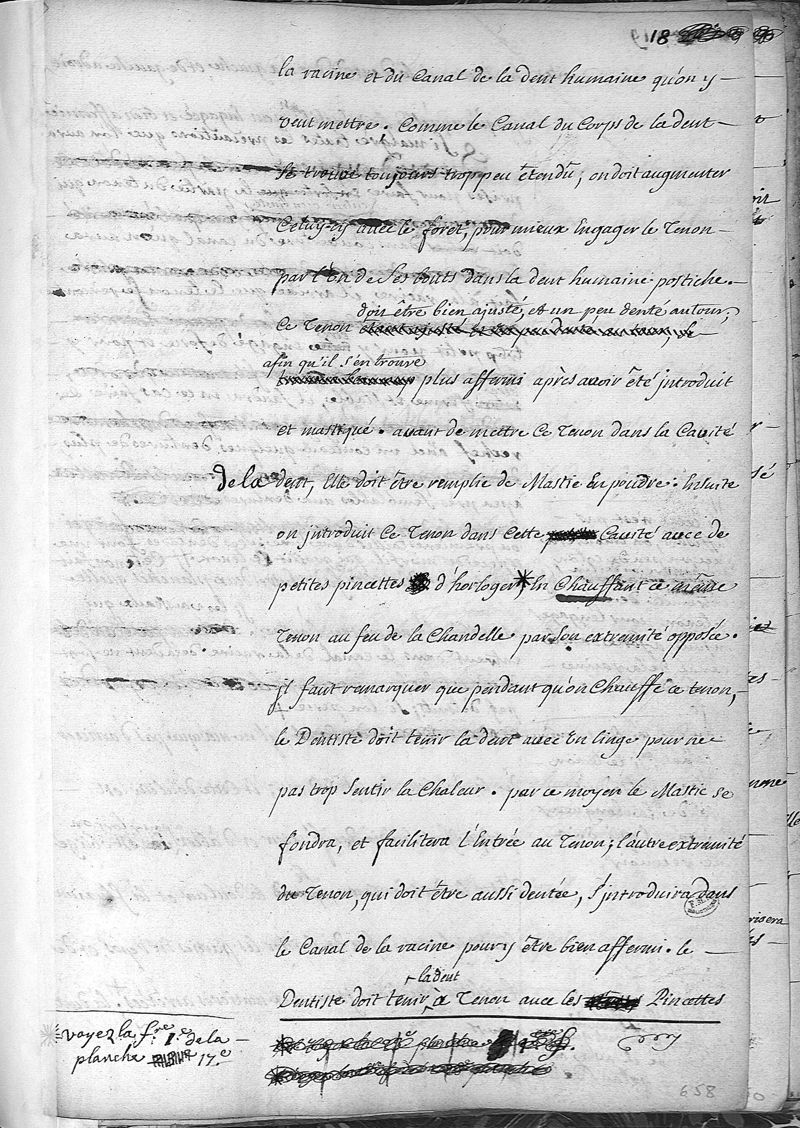 18
la racine et du Canal de la dent humaine qu'on y
veut mettre. Comme le Canal du Corps de la dent
se trouve toujours trop peu étendu; on doit augmenter
Celuy-cy avec le foret, pour mieux Engager le Tenon
par l'un de ses bouts dans la dent humaine postiche.
doit être bien ajusté, et un peu denté autour,
Ce Tenon
afin qu'il s'en trouve
plus affermi après avoir été introduit
et mastiqué. avant de mettre Ce Tenon dans la Cavité
de la dent, Elle doit être remplie de Mastic En poudre. Ensuite
on jntroduit Ce Tenon dans Cette Cavité avec de
petites pincettes d'horloger * En Chauffant ce même
Tenon au feu de la Chandelle par son extremité opposée.
jl faut remarquer que pendant qu'on Chauffe ce tenon,
le Dentiste doit tenir la dent avec En linge pour ne
pas trop sentir la Chaleur. par ce moyen le Mastic se
fondra, et facilitera l'Entrée au Tenon; l'autre extremité
du Tenon, qui doit être aussi dentée, s'jntroduira dans
le Canal de la racine pour y être bien affermi. le
la dent
Dentiste doit tenir à Tenon avec les Pincettes
* voyez la f.re 1.e de la
planche 17.e
658